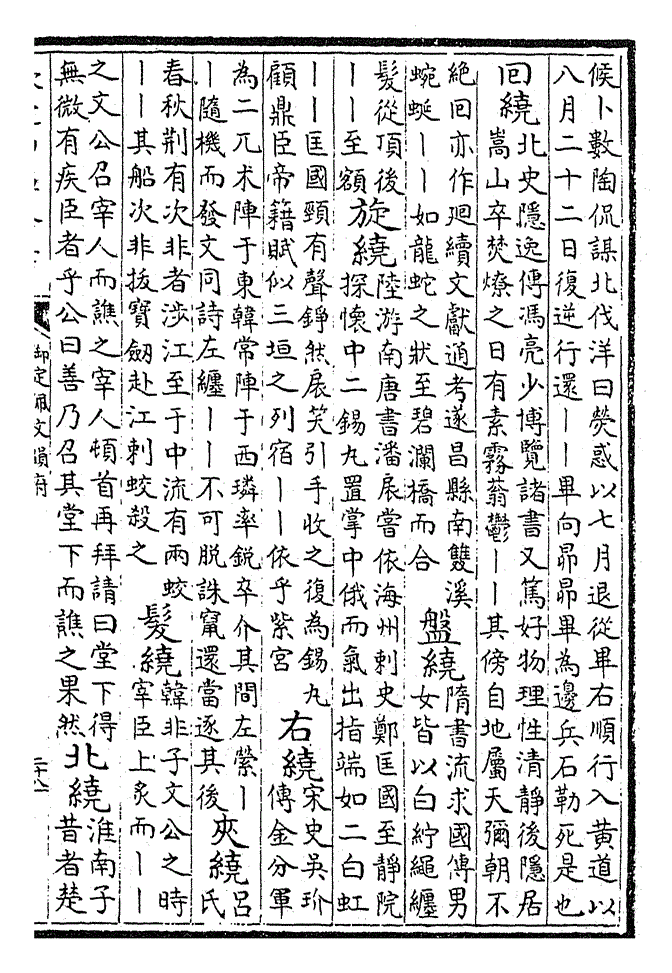 候卜數陶侃謀北伐洋曰熒惑以七月退從畢右順行入黃道以
八月二十二日復逆行還丨丨畢向昴昴畢為邊兵石勒死是也
回繞
北史隱逸傳馮亮少博覽諸書又篤好物理性清靜後隱居
嵩山卒焚燎之日有素霧蓊鬱丨丨其傍自地屬天彌朝不
絶回亦作廻續文獻通考遂昌縣南雙溪
蜿蜒丨丨如龍蛇之狀至碧瀾橋而合
盤繞
隋書流求國傳男
女皆以白紵繩纏
髮從頂後
丨丨至額
旋繞
陸游南唐書潘扆嘗依海州刺史鄭匡國至靜院
探懷中二錫丸置掌中俄而氣出指端如二白虹
丨丨匡國頸有聲錚然扆笑引手收之復為錫丸
顧鼎臣帝籍賦似三垣之列宿丨丨依乎紫宮
右繞
宋史吳玠
傳金分軍
為二兀朮陣于東韓常陣于西璘率鋭卒介其間左縈丨
丨隨機而發文同詩左纏丨丨不可脱誅竄還當逐其後
夾繞
呂
氏
春秋荆有次非者涉江至于中流有兩蛟
丨丨其船次非拔寶劒赴江刺蛟殺之
髮繞
韓非子文公之時
宰臣上炙而丨丨
之文公召宰人而譙之宰人頓首再拜請曰堂下得
無微有疾臣者乎公曰善乃召其堂下而譙之果然
北繞
淮南子
昔者楚
御定佩文韻府
二十八